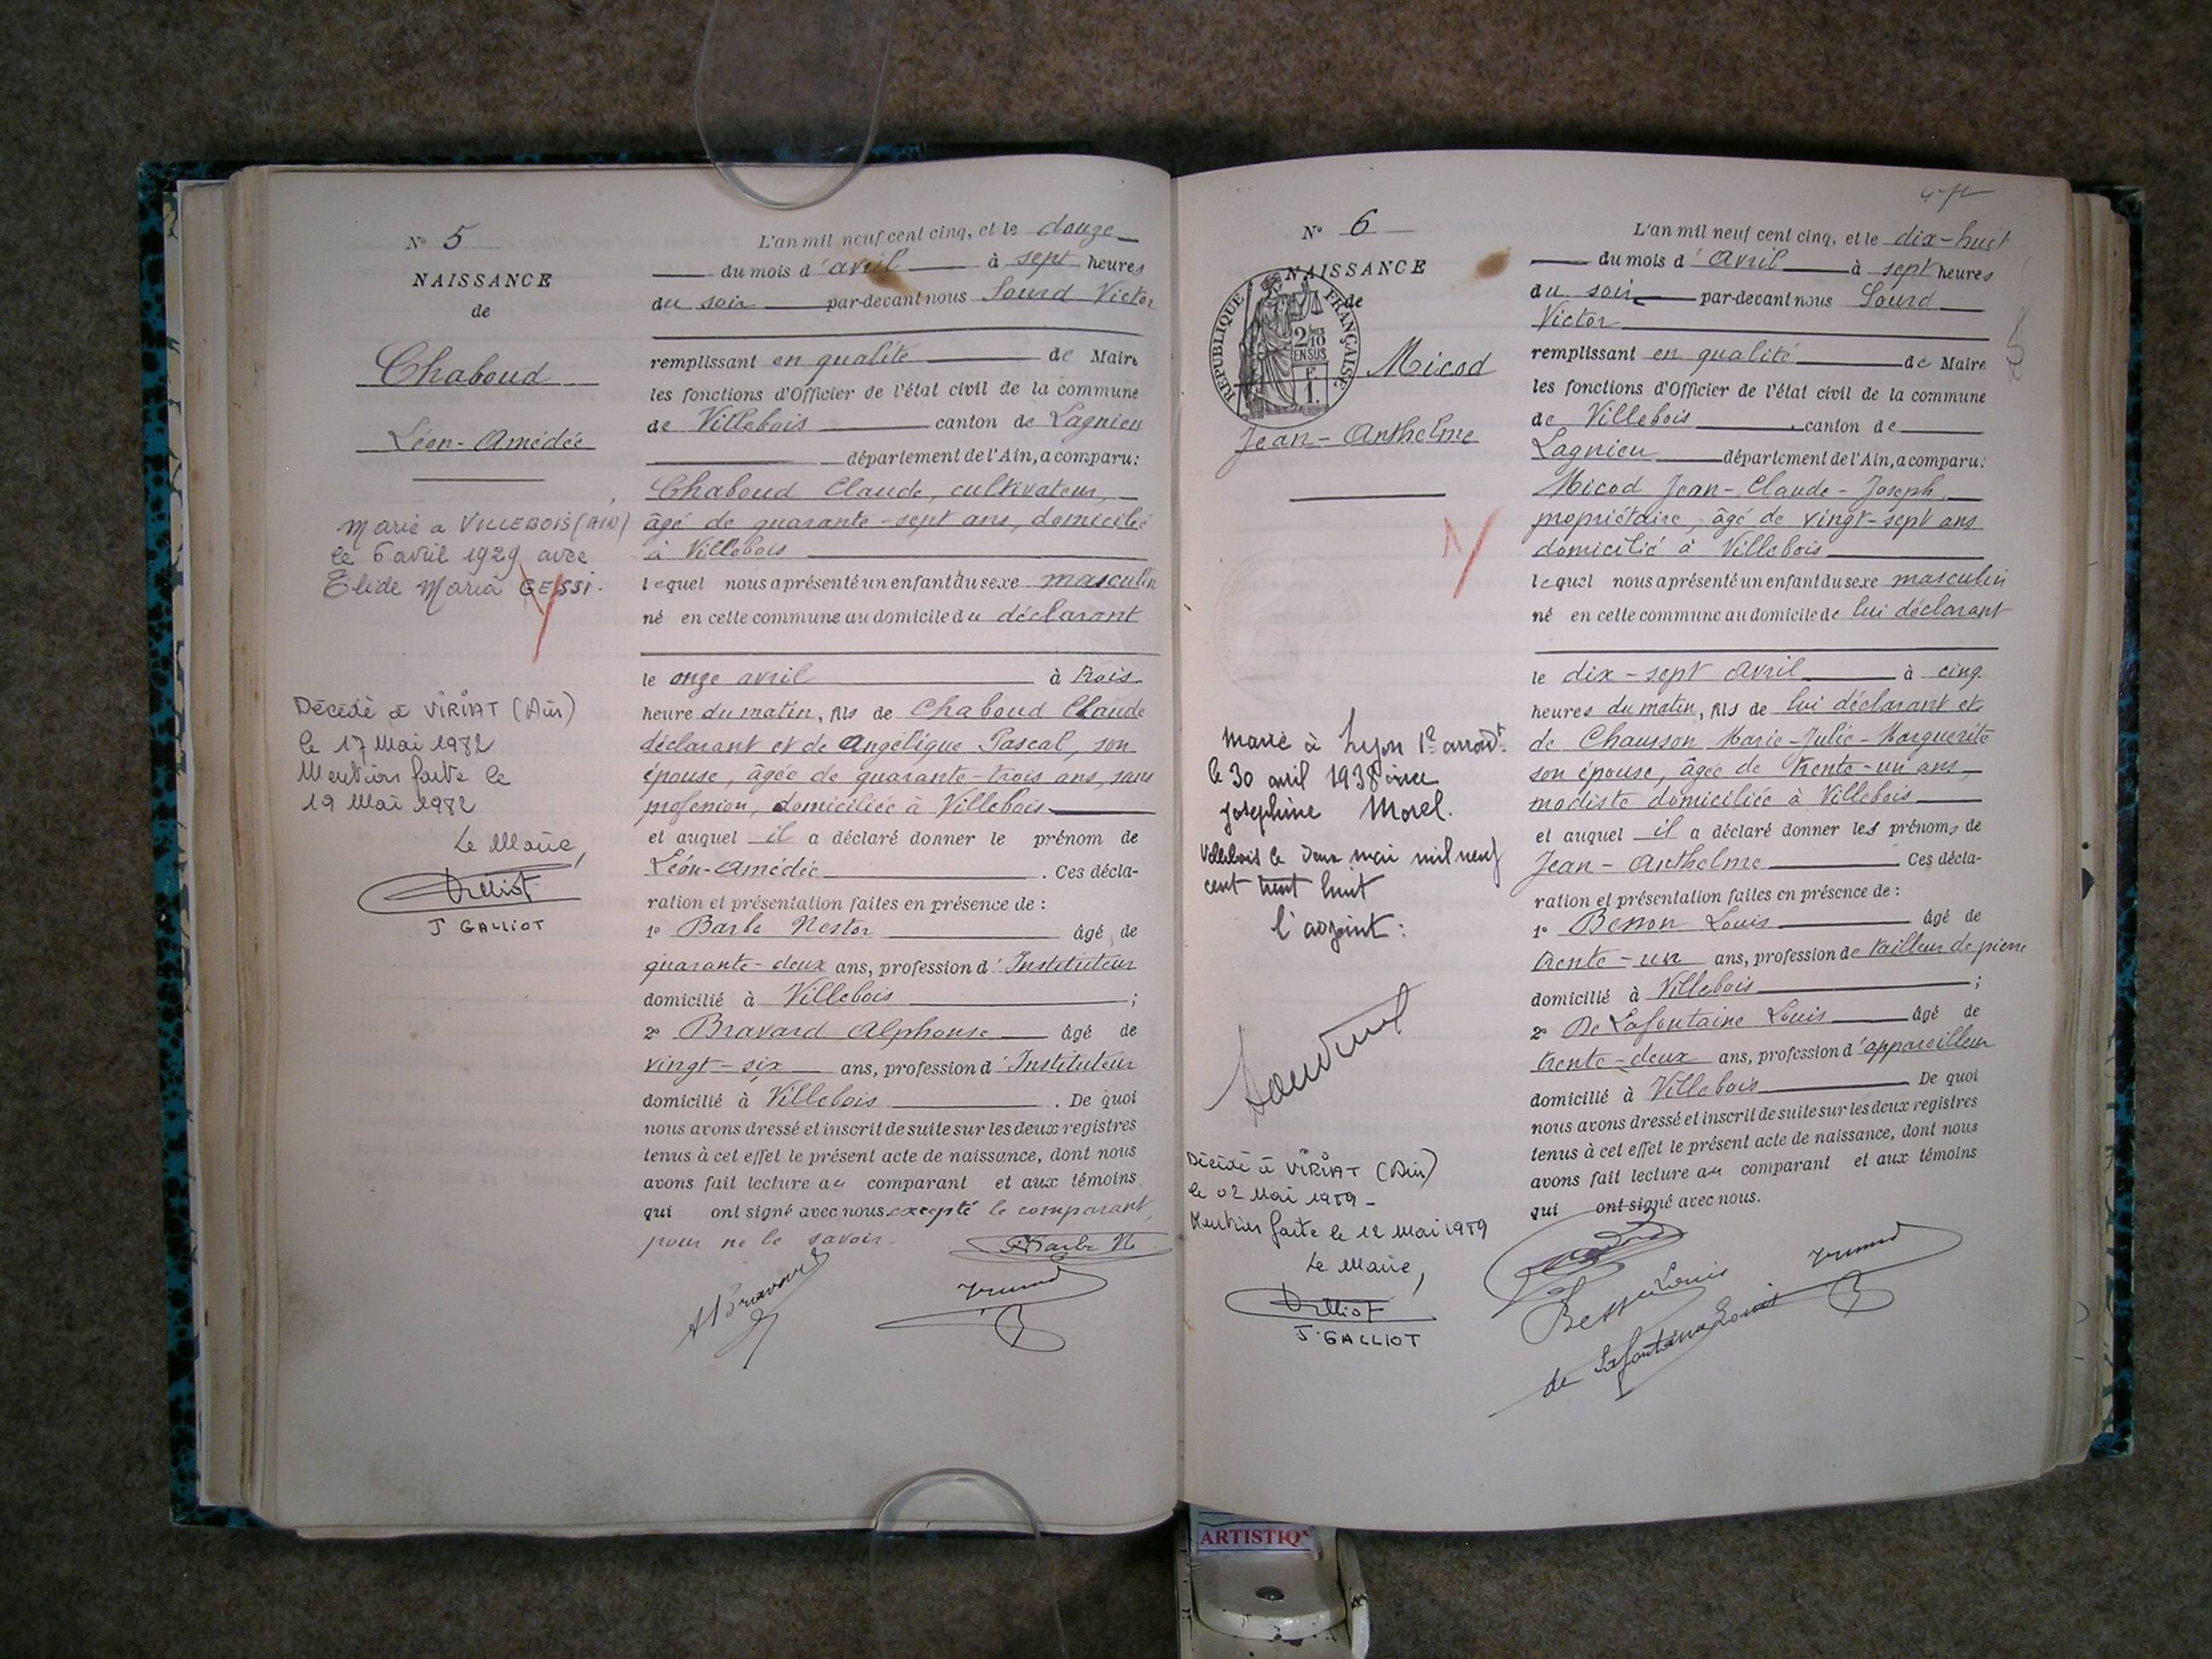 N° 5
NAISSANCE
de
Chaboud
Léon-Amédée
Marié a VILLEBOIS (AIN)
le 6 avril 1929 avec
Elide Maria GESSI.
Décédé à VIRIAT (Ain)
le 17 Mai 1982
Mention faite le
19 Mai 1982
Le Maire,
J GALLIOT
L'an mil neuf cent cinq, et le douze
du mois d'avril à sept heures
du soir par-devant nous Sourd Victor
remplissant en qualité de Maire
les fonctions d'Officier de l'état civil de la commune
de Villebois canton de Lagnieu
département de l'Ain, a comparu:
Chaboud Claude, cultivateur,
âgé de quarante-sept ans, domicilié
à Villebois
lequel nous a présenté un enfant du sexe masculin
né en cette commune au domicile du déclarant
le onze avril à trois
heure du matin, fils de Chaboud Claude
déclarant et de Angélique Pascal, son
épouse, âgée de quarante-trois ans, sans
profession, domiciliée à Villebois
et auquel il a déclaré donner le prénom de
Léon-Amédée. Ces décla-
ration et présentation faites en présence de:
1° Barbe Nestor âgé de
quarante-deux ans, profession d'Instituteur
domicilié à Villebois;
2° Bravard Alphonse âgé de
vingt-six ans, profession d'Instituteur
domicilié à Villebois. De quoi
nous avons dressé et inscrit de suite sur les deux registres
tenus à cet effet le présent acte de naissance, dont nous
avons fait lecture au comparant et aux témoins
qui ont signé avec nous excepté le comparant,
pour ne le savoir.
Barbe N
ABravard
N° 6
NAISSANCE
de
REPUBLIQUE FRANÇAISE
2/10
EN SUS
F
1.
Micod
Jean-Anthelme
Marié à Lyon 1er arrondt.
le 30 avril 1938 avec
Joséphine Morel.
Villebois le deux mai mil neuf
cent trent huit
l'adjoint:
Décédé à VIRIAT (Ain)
le 02 Mai 1989
Mention faite le 12 Mai 1989
Le Maire,
J. GALLIOT
L'an mil neuf cent cinq, et le dix-huit
du mois d'avril à sept heures
du soir par-devant nous Sourd
Victor
remplissant en qualité de Maire
les fonctions d'Officier de l'état civil de la commune
de Villebois canton de
Lagnieu département de l'Ain, a comparu:
Micod Jean-Claude-Joseph,
propriétaire, âgé de vingt-sept ans
domicilié à Villebois
lequel nous a présenté un enfant du sexe masculin
né en cette commune au domicile de lui déclarant
le dix-sept avril à cinq
heures du matin, fils de lui déclarant et
de Chausson Marie-Julie-Marguerite
son épouse, âgée de trente-un ans,
modiste domiciliée à Villebois
et auquel il a déclaré donner les prénoms de
Jean-Anthelme. Ces décla-
ration et présentation faites en présence de:
1° Besson Louis âgé de
trente-un ans, profession de tailleur de pierre
domicilié à Villebois;
2° De Lafontaine Louis âgé de
trente-deux ans, profession d'appareilleur
domicilié à Villebois. De quoi
nous avons dressé et inscrit de suite sur les deux registres
tenus à cet effet le présent acte de naissance, dont nous
avons fait lecture au comparant et aux témoins
qui ont signé avec nous.
Besson Louis
de Lafontaine Louis
ARTISTIQ